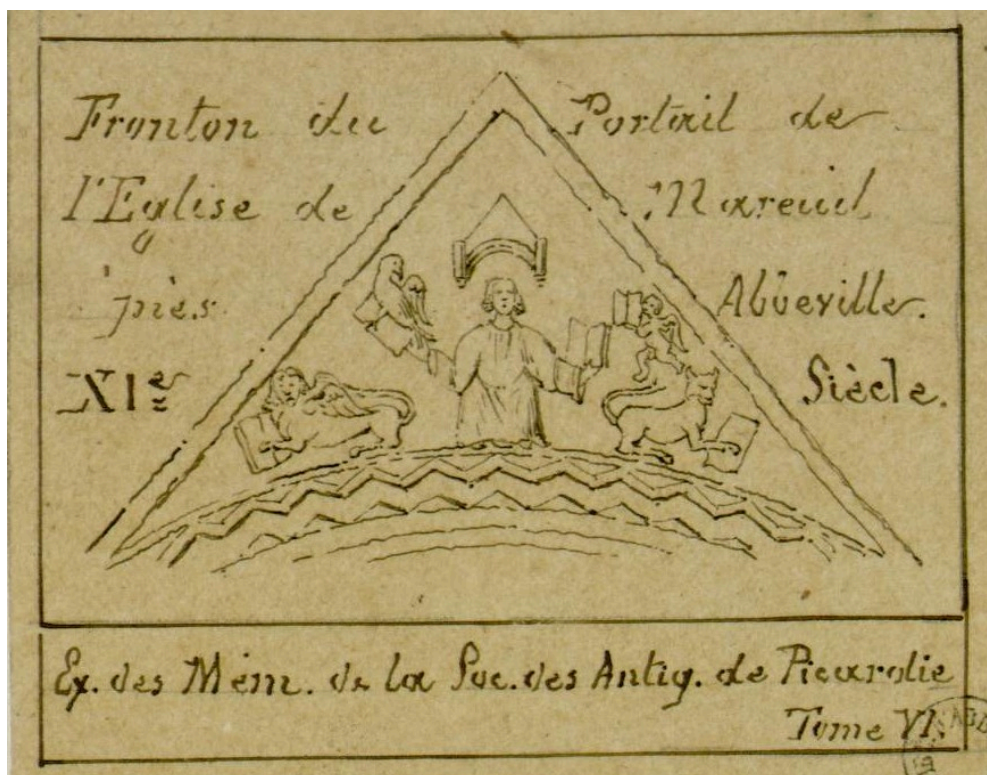 Fronton du Portail de
l'Eglise de Mareuil
près Abbeville.
XIe Siècle.
Ex. des Mém. de la Soc. des Antiq. de Picardie
Tome VI.